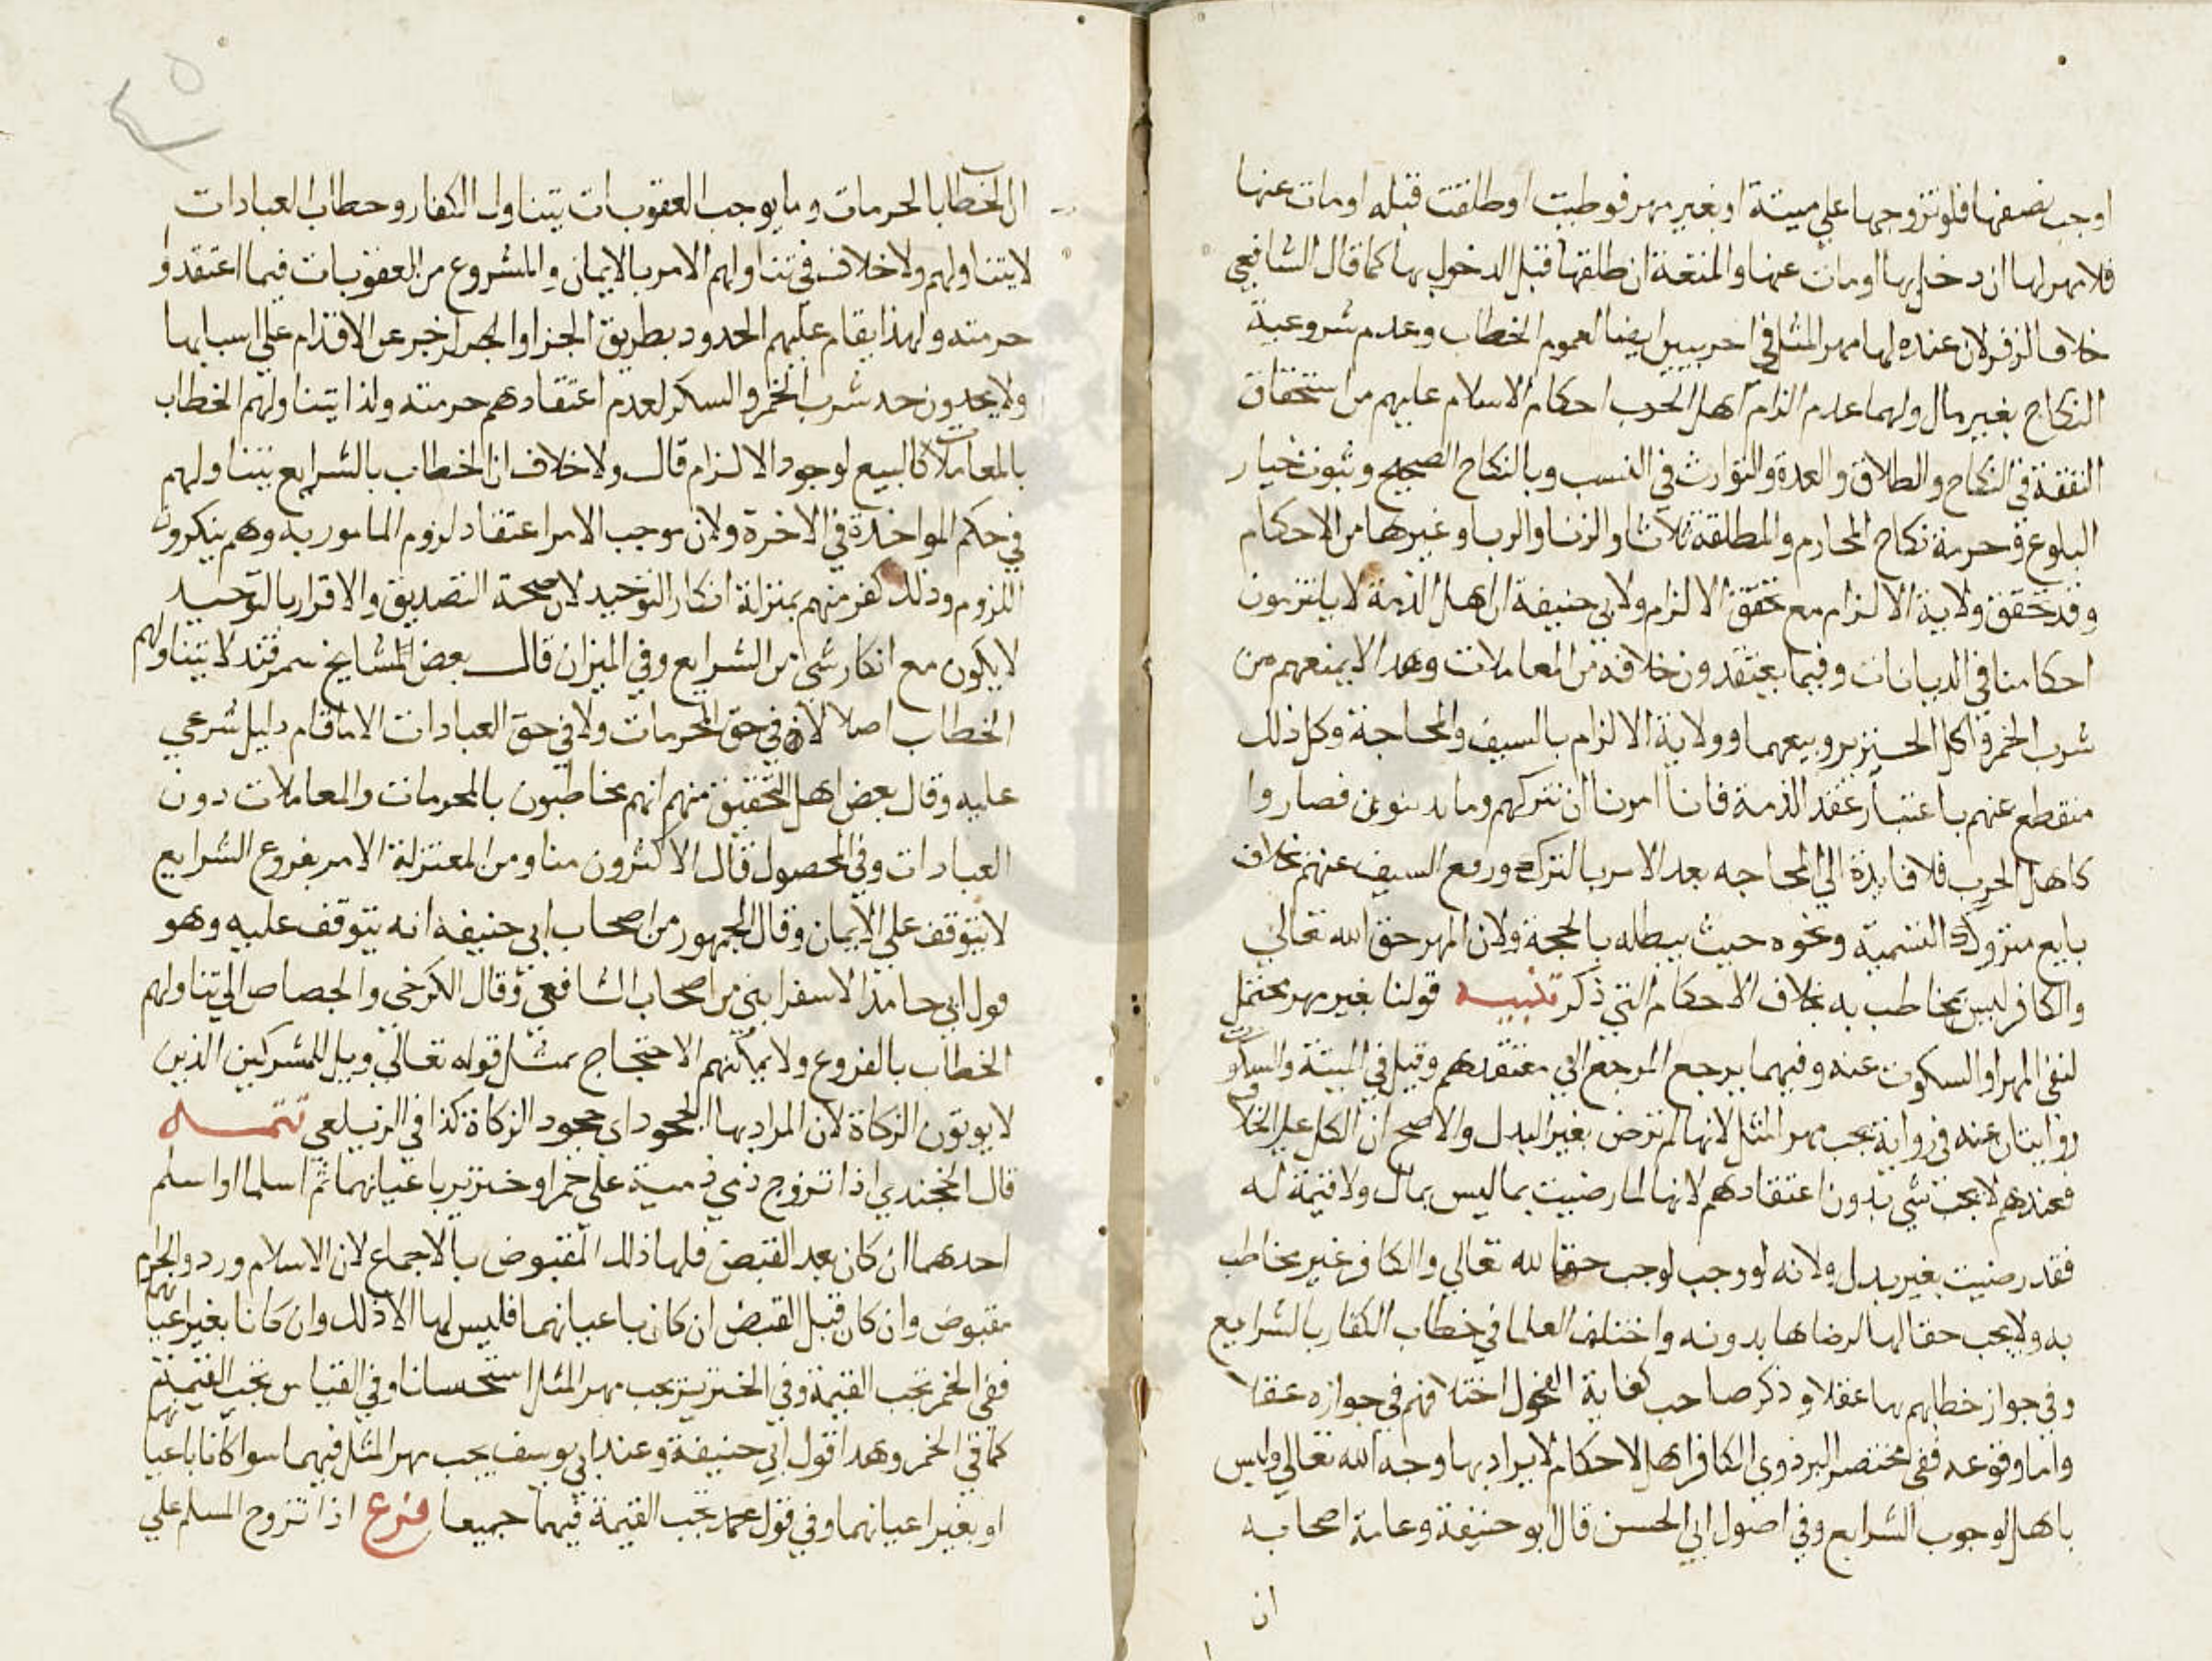 اوجب نصفها فلو تزوجها علي ميتة او بغير مهر فوطيت او طلقت قبله او مات عنها
فلا مهر لها ان دخل بها او مات عنها والمتعة ان طلقها قبل الدخول بها كما قال الشافعي
خلافا لزفر لان عنده لها مهر المثل في احربيين ايضا لعموم الخطاب وعدم شروعية
النكاح بغير مال ولهما عدم الزام اهل الحرب احكام الاسلام عليهم من استحقاق
النفقة في النكاح والطلاق والعدة والتوارث في النسب وبالنكاح الصحيح وثبوت خيار
البلوغ وحرمة نكاح المحارم والمطلقة ثلاثا والزنا والربا وغيرها من الاحكام
وقد تحقق ولاية الالزام مع تحقق الالزام ولابي حنيفة ان اهل الذمة لا يلتزمون
احكامنا في الديانات وفيما يعتقدون خلافه من المعاملات وهذا لا يمنعهم من
شرب الخمر واكل الخنزير وبيعهما وولاية الالزام بالسيف والمحاجة وكل ذلك
منقطع عنهم باعتبار عقد الذمة فانا امرنا ان نتركهم وما يدينون فصاروا
كاهل الحرب فلا فايدة الي المحاجه بعد الامر بالترك ورفع السيف عنهم بخلاف
بايع متروك التسمية ونحوه حيث يبطله بالحجة ولان المهر حق الله تعالي
والكافر ليس بخاطب به بخلاف الاحكام التي ذكر تنبيه قولنا بغير مهر يحتمل
لنفي المهر او السكوت عنه وفيهما يرجع المرجع الي معتقدهم وقيل في الميتة والسكوت
روايتان عنه في رواية يجب مهر المثل لانها لم ترض بغير البدل والاصح ان الكل علي الخلاف
فعندهم لا يجب شي بدون اعتقادهم لانها لما رضيت بما ليس بمال ولا قيمة له
فقد رضيت بغير بدل ولانه لو وجب لوجب حقا لله تعالي والكافر غير مخاطب
به ولا يجب حقا لها لرضاها بدونه واختلف العلما في خطاب الكفار بالشرايع
وفي جواز خطابهم بها عقلا وذكر صاحب كفاية الفحول اختلافهم في جوازه عقلا
واما وقوعه ففي مختصر البزدوي الكافر اهل لاحكام لا يراد بها وجه الله تعالي وليس
باهل لوجوب الشرايع وفي اصول ابي الحسن قال ابو حنيفة وعامة اصحابه
ان
ان الخطاب بالحرمات وما يوجب العقوبات يتناول الكفار وخطاب العبادات
لا يتناولهم ولا خلاف في تناولهم الامر بالايمان والمشروع من العقوبات فيما اعتقدوا
حرمته ولهذا يقام عليهم الحدود بطريق الجزا عن الاقدام علي اسبابها
ولا يحدون حد شرب الخمر والسكر لعدم اعتقادهم حرمته ولذا يتناولهم الخطاب
بالمعاملات كالبيع لوجود الالزام قال ولا خلاف ان الخطاب بالشرايع يتناولهم
في حكم المواخذة في الاخرة ولان موجب الامر اعتقاد لزوم المامور به وهم ينكرون
اللزوم وذلك كفر منهم بمنزلة انكار التوحيد لان صحة التصديق والاقرار بالتوحيد
لا يكون مع انكار شي من الشرايع وفي الميزان قال بعض المشايخ سمرقند لا يتناولهم
الخطاب اصلا لا في حق المحرمات ولا في حق العبادات الا ما قام دليل شرعي
عليه وقال بعض اهل التحقيق منهم انهم مخاطبون بالمحرمات والمعاملات دون
العبادات وفي المحصول قال الاكثرون منا ومن المعتزلة الامر بفروع الشرايع
لا يتوقف علي الايمان وقال الجمهور من اصحاب ابي حنيفه انه يتوقف عليه وهو
قول ابي حامد الاسفرايني من اصحاب الشافعي وقال الكرخي والجصاص الي تناولهم
الخطاب بالفروع ولا يمكنهم الاحتجاج بمثل قوله تعالي وويل للمشركين الذين
لا يوتون الزكاة لان المراد بها الجحود اي جحود الزكاة كذا في الزيلعي تتمه
قال الخجندي اذا تزوج ذمي ذمية علي خمر او خنزير باعيانهما ثم اسلما او اسلم
احدهما ان كان بعد القبض فلها ذلك المقبوض بالاجماع لان الاسلام ورد والحرام
مقبوض وان كان قبل القبض ان كان باعيانهما فليس لها الا ذلك وان كانا بغير اعيانهما
ففي الخمر تجب القيمة وفي الخنزير يجب مهر المثل استحسانا وفي القياس تجب القيمة
كما في الخمر وهذا قول ابي حنيفة وعند ابي يوسف يجب مهر المثل فيهما سوا كانا باعيانهما
او بغير اعيانهما وفي قول محمد تجب القيمة فيهما جميعا فرع اذا تزوج المسلم علي